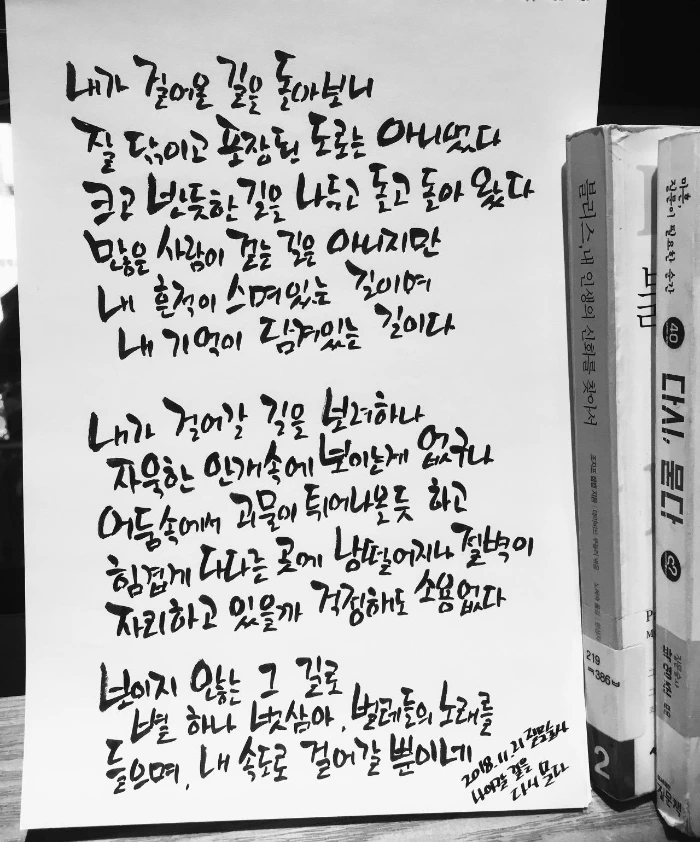 내가 걸어온 길을 돌아보니
잘 닦이고 포장된 도로는 아니었다
크고 반듯한 길을 나두고 돌고 돌아 왔다
많은 사람이 걷는 길은 아니지만
내 흔적이 스며있는 길이며
내 기억이 담겨있는 길이다
내가 걸어갈 길을 보려하나
자욱한 안개속에 보이는게 없구나
어둠속에서 괴물이 튀어나올듯 하고
힘겹게 다다른 곳에 낭떨어지나 절벽이
자리하고 있을까 걱정해도 소용없다
보이지 않는 그 길로
별 하나 벗삼아, 벌레들의 노래를
들으며, 내 속도로 걸어갈 뿐이네
2018.11.21 질문술사
나아갈 길을
다시 묻다
블리스, 내 인생의 신화를 찾아서
219
386
2
마흔,
질문이 필요한 순간
40
다시, 묻다
질문술사
박영준